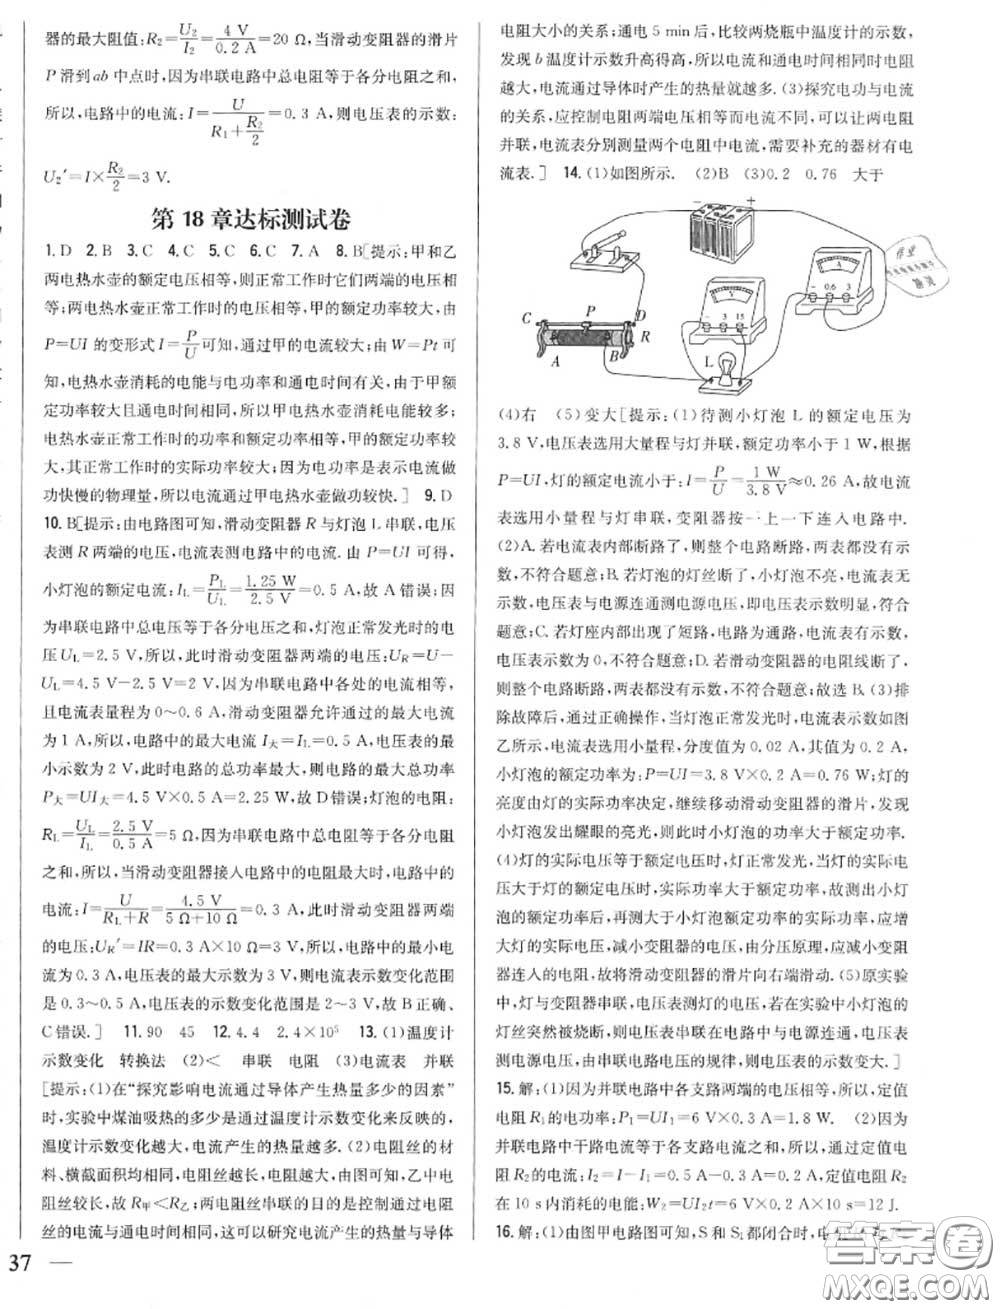 器的最大阻值:R₂=U₂/I₂=4 V/0.2 A=20 Ω,当滑动变阻器的滑片
P滑到ab中点时,因为串联电路中总电阻等于各分电阻之和,
所以,电路中的电流:I=U/(R₁+R₂/2)=0.3 A,则电压表的示数:
U₂′=I×R₂/2=3 V.
第18章达标测试卷
1.D 2.B 3.C 4.C 5.C 6.C 7.A 8.B[提示:甲和乙
两电热水壶的额定电压相等,则正常工作时它们两端的电压相
等;两电热水壶正常工作时的电压相等,甲的额定功率较大,由
P=UI的变形式I=P/U可知,通过甲的电流较大;由W=Pt可
知,电热水壶消耗的电能与电功率和通电时间有关,由于甲额
定功率较大且通电时间相同,所以甲电热水壶消耗电能较多;
电热水壶正常工作时的功率和额定功率相等,甲的额定功率较
大,其正常工作时的实际功率较大;因为功率是表示电流做
功快慢的物理量,所以电流通过甲电热水壶做功较快.] 9.D
10.B[提示:由电路图可知,滑动变阻器R与灯泡L串联,电压
表测R两端的电压,电流表测电路中的电流.由P=UI可得,
小灯泡的额定电流:I_L=P_L/U_L=1.25 W/2.5 V=0.5 A,故A错误;因
为串联电路中总电压等于各分电压之和,灯泡正常发光时的电
压U_L=2.5 V,所以,此时滑动变阻器两端的电压:U_R=U-
U_L=4.5 V-2.5 V=2 V,因为串联电路中各处的电流相等,
且电流表量程为0~0.6 A,滑动变阻器允许通过的最大电流
为1 A,所以,电路中的最大电流I大=I_L=0.5 A,电压表的最
小示数为2 V,此时电路的总功率最大,则电路的最大总功率
P大=UI大=4.5 V×0.5 A=2.25 W,故D错误;灯泡的电阻:
R_L=U_L/I_L=2.5 V/0.5 A=5 Ω,因为串联电路中总电阻等于各分电阻
之和,所以,当滑动变阻器接入电路中的电阻最大时,电路中的
电流:I=U/(R_L+R)=4.5 V/(5 Ω+10 Ω)=0.3 A,此时滑动变阻器两端
的电压:U_R′=IR=0.3 A×10 Ω=3 V,所以,电路中的最小电
流为0.3 A,电压表的最大示数为3 V,则电流表示数变化范围
是0.3~0.5 A,电压表的示数变化范围是2~3 V,故B正确、
C错误.] 11.90 45 12.4.4 2.4×10⁵ 13.(1)温度计
示数变化 转换法 (2)< 串联 电阻 (3)电流表 并联
[提示:(1)在“探究影响电流通过导体产生热量多少的因素”
时,实验中煤油吸热的多少是通过温度计示数变化来反映的,
温度计示数变化越大,电流产生的热量越多.(2)电阻丝的材
料、横截面积均相同,电阻丝越长,电阻越大,由图可知,乙中电
阻丝较长,故R甲<R乙;两电阻丝串联的目的是控制通过电阻
丝的电流与通电时间相等,这可以研究电流产生的热量与导体
37
电阻大小的关系;通电5 min后,比较两烧瓶中温度计的示数,
发现b温度计示数升高得高,所以电流和通电时间相同时电阻
越大,电流通过导体时产生的热量就越多.(3)探究电功与电流
的关系,应控制电阻两端电压相等而电流不同,可以让两电阻
并联,电流表分别测量两个电阻中电流,需要补充的器材有电
流表.] 14.(1)如图所示. (2)B (3)0.2 0.76 大于
- +
C P D R
A B
- 3 15
V
L
- 0.6 3
A
作业
(4)右 (5)变大[提示:(1)待测小灯泡L的额定电压为
3.8 V,电压表选用大量程与灯并联,额定功率小于1 W,根据
P=UI,灯的额定电流小于:I=P/U=1 W/3.8 V≈0.26 A,故电流
表选用小量程与灯串联,变阻器按一上一下连入电路中.
(2)A.若电流表内部断路了,则整个电路断路,两表都没有示
数,不符合题意;B.若灯泡的灯丝断了,小灯泡不亮,电流表无
示数,电压表与电源连通测电源电压,即电压表示数明显,符合
题意;C.若灯座内部出现了短路,电路为通路,电流表有示数,
电压表示数为0,不符合题意;D.若滑动变阻器的电阻线断了,
则整个电路断路,两表都没有示数,不符合题意;故选B.(3)排
除故障后,通过正确操作,当灯泡正常发光时,电流表示数如图
乙所示,电流表选用小量程,分度值为0.02 A,其值为0.2 A,
小灯泡的额定功率为:P=UI=3.8 V×0.2 A=0.76 W;灯的
亮度由灯的实际功率决定,继续移动滑动变阻器的滑片,发现
小灯泡发出耀眼的亮光,则此时小灯泡的功率大于额定功率.
(4)灯的实际电压等于额定电压时,灯正常发光,当灯的实际电
压大于灯的额定电压时,实际功率大于额定功率,故测出小灯
泡的额定功率后,再测大于小灯泡额定功率的实际功率,应增
大灯的实际电压,减小变阻器的电压,由分压原理,应减小变阻
器连入的电阻,故将滑动变阻器的滑片向右端滑动.(5)原实验
中,灯与变阻器串联,电压表测灯的电压,若在实验中小灯泡的
灯丝突然被烧断,则电压表串联在电路中与电源连通,电压表
测电源电压,由串联电路电压的规律,则电压表的示数变大.]
15.解:(1)因为并联电路中各支路两端的电压相等,所以,定值
电阻R₁的电功率:P₁=UI₁=6 V×0.3 A=1.8 W. (2)因为
并联电路中干路电流等于各支路电流之和,所以,通过定值电
阻R₂的电流:I₂=I-I₁=0.5 A-0.3 A=0.2 A,定值电阻R₂
在10 s内消耗的电能:W₂=UI₂t=6 V×0.2 A×10 s=12 J.
16.解:(1)由图甲电路图可知,S和S₁都闭合时,电
答案卷
MXQE.COM